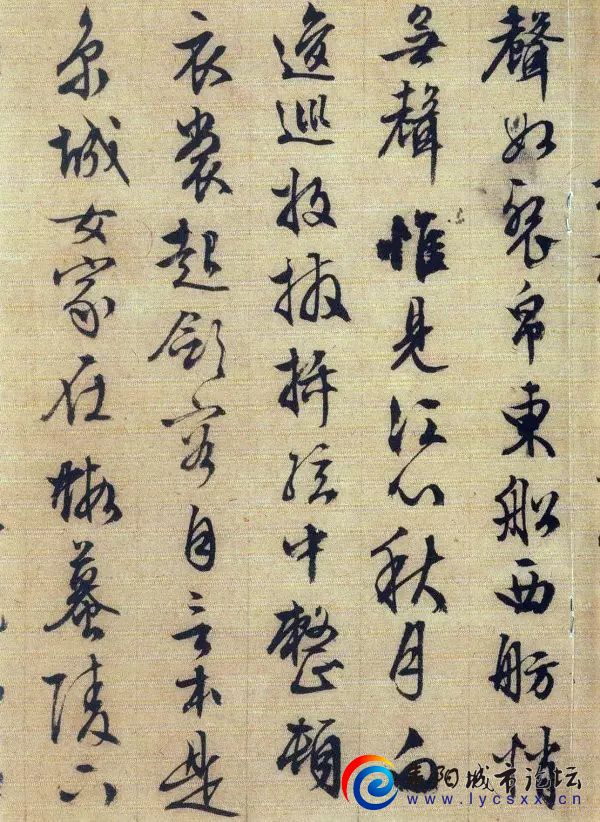 聲如裂帛東船西舫悄
無聲惟見江心秋月白
逡巡放撥插絃中整頓
衣裳起斂容自言本是
京城女家在蝦蟇陵下
耒阳城市论坛
www.lycsxx.cn